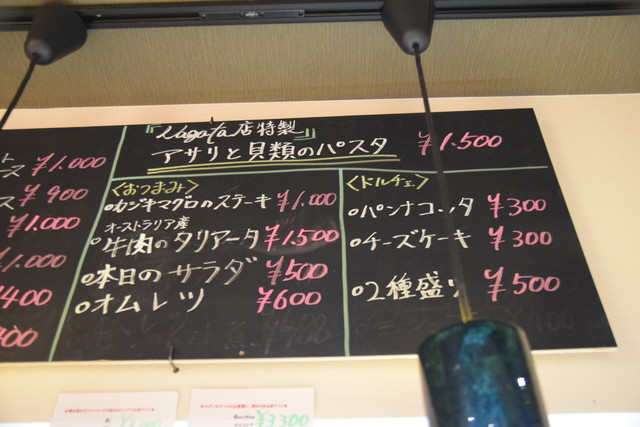 『Nagata店特製』
アサリと貝類のパスタ ¥1.500
¥1.000
¥900
¥1.000
〈おつまみ〉
カジキマグロのステーキ ¥1.000
オーストラリア産
牛肉のタリアータ ¥1.500
本日のサラダ ¥500
オムレツ ¥600
〈ドルチェ〉
パンナコッタ ¥300
チーズケーキ ¥300
2種盛り ¥500
¥3300